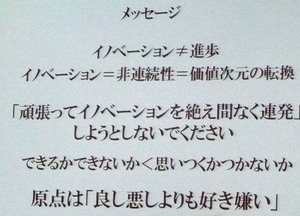 メッセージ
イノベーション≠進歩
イノベーション＝非連続性＝価値次元の転換
「頑張ってイノベーションを絶え間なく連発」
しようとしないでください
できるかできないか＜思いつくかつかないか
原点は「良し悪しよりも好き嫌い」